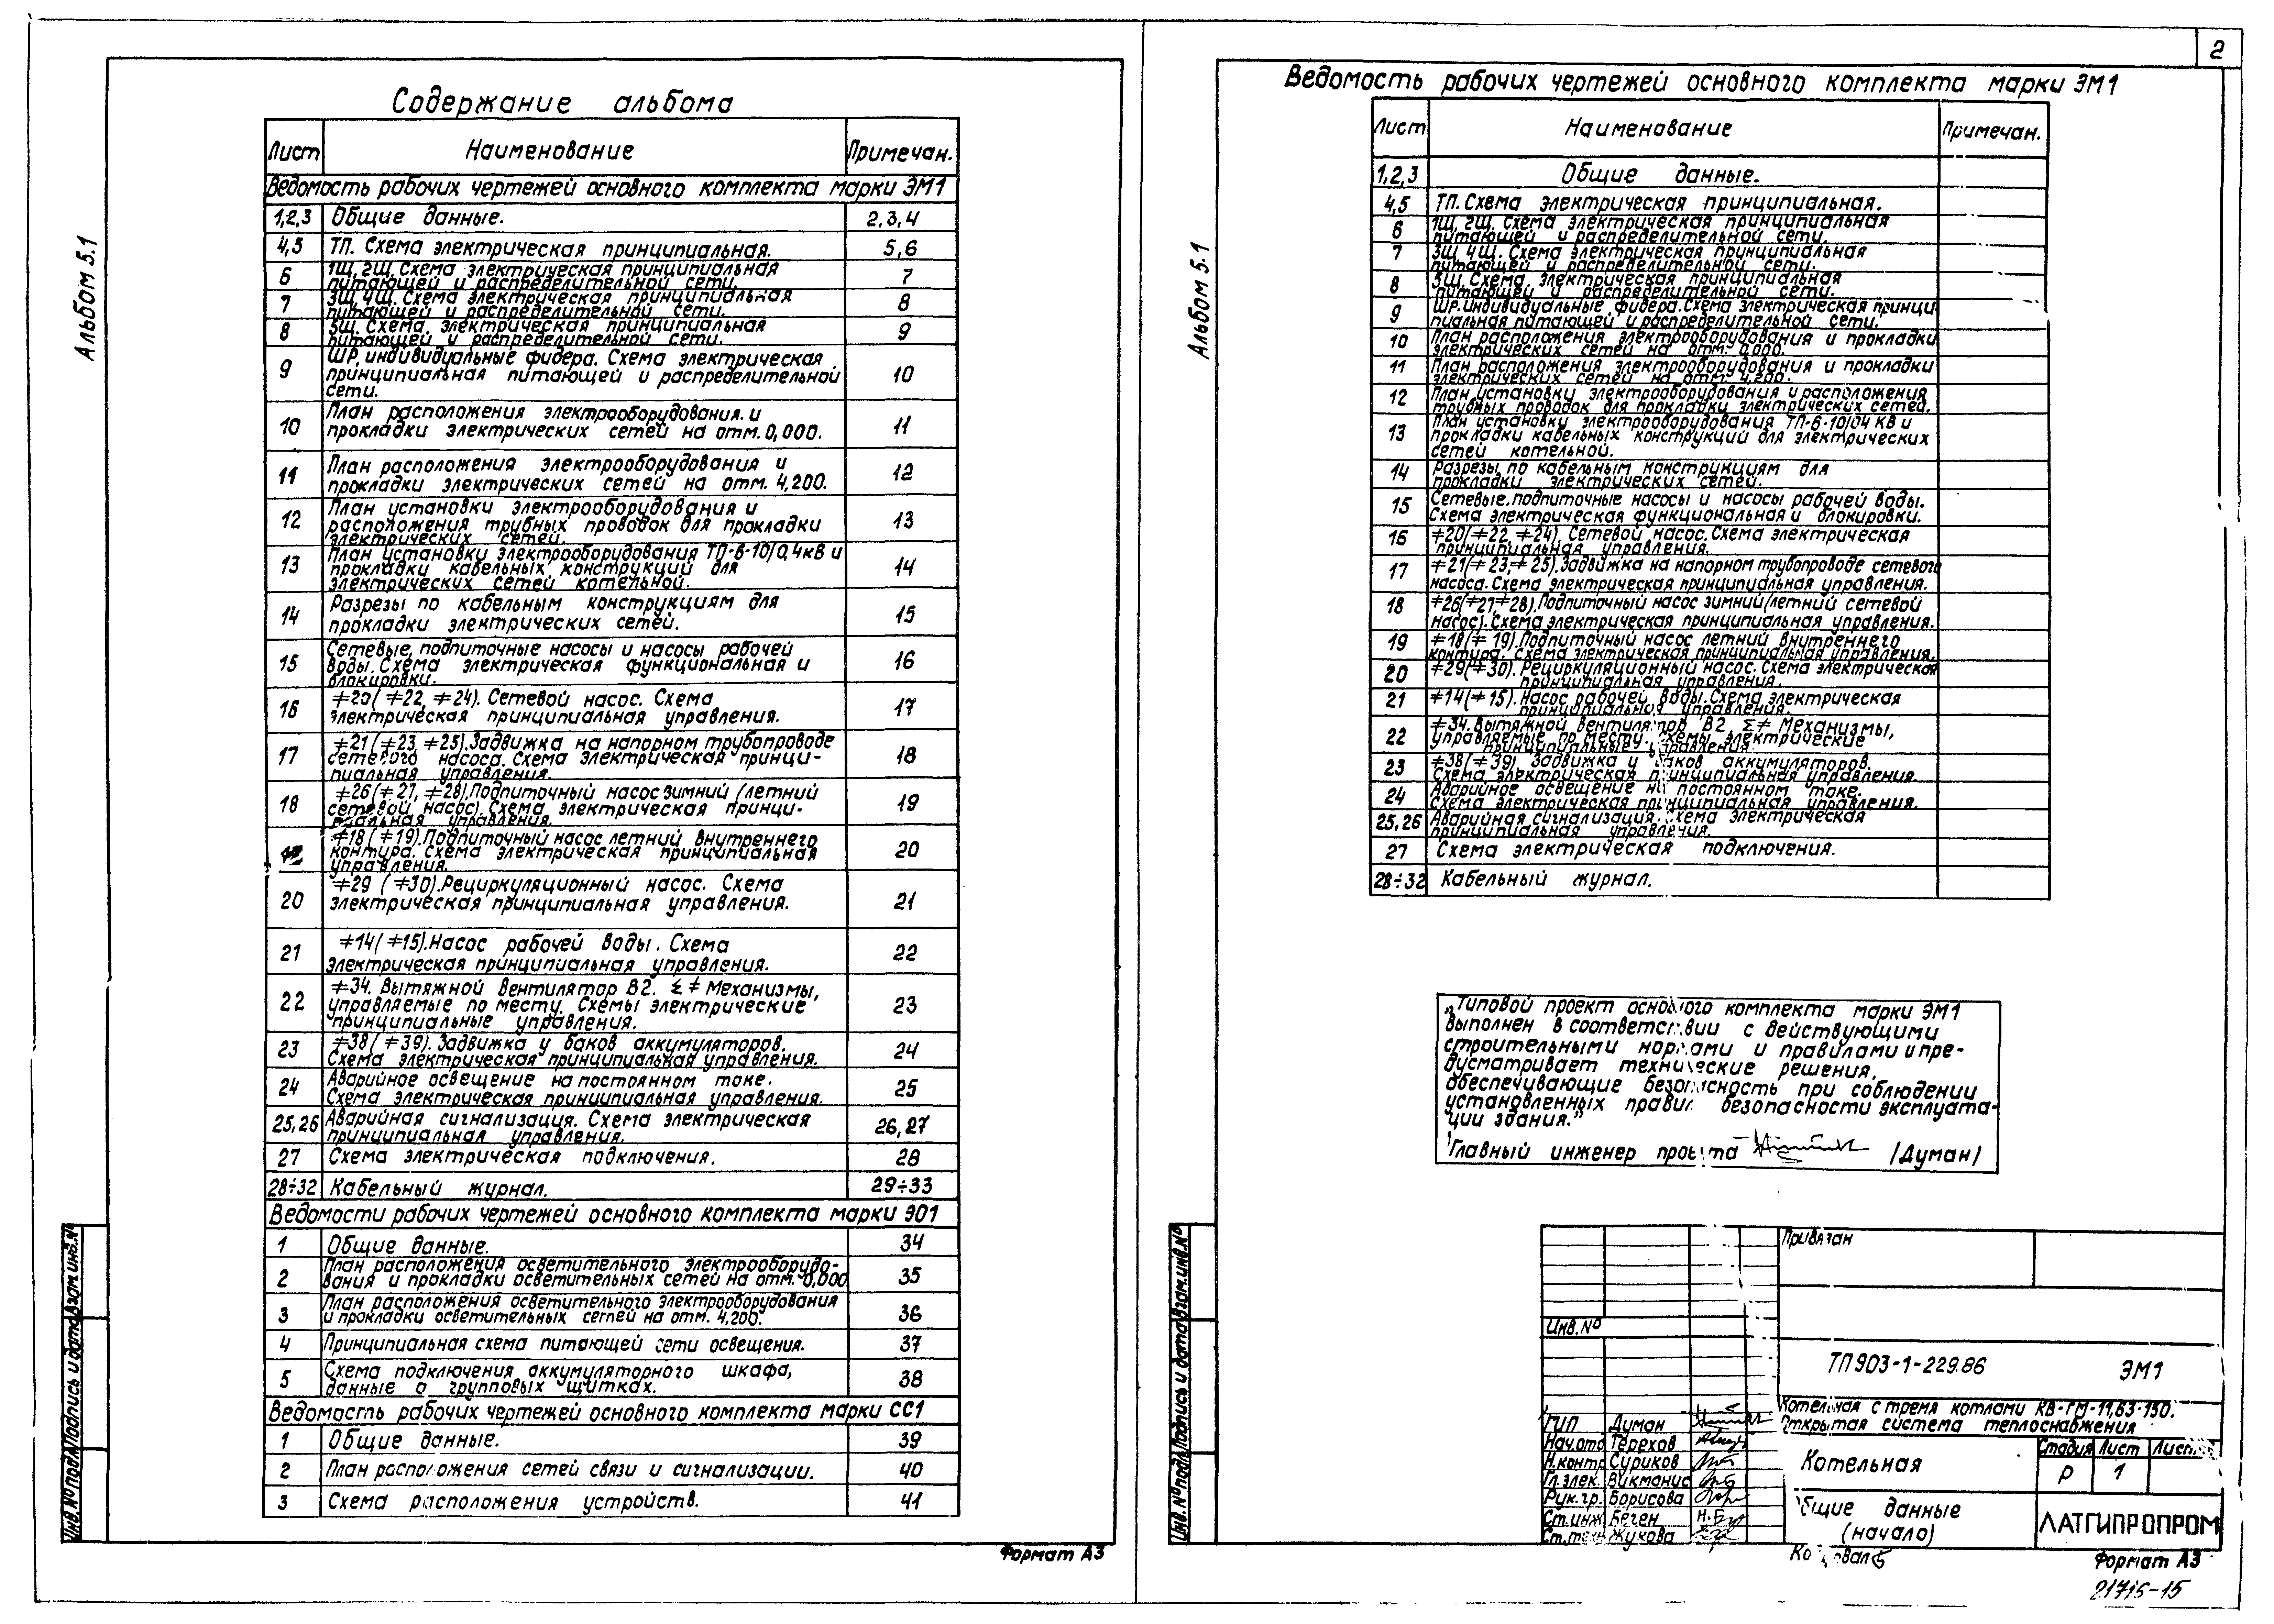 2
Альбом 5.1
Содержание альбома
Лист Наименование Примечан.
Ведомость рабочих чертежей основного комплекта марки ЭМ1
1,2,3 Общие данные. 2,3,4
4,5 ТП. Схема электрическая принципиальная. 5,6
6 1Щ, 2Щ. Схема электрическая принципиальная
питающей и распределительной сети. 7
7 3Щ, 4Щ. Схема электрическая принципиальная
питающей и распределительной сети. 8
8 5Щ. Схема электрическая принципиальная
питающей и распределительной сети. 9
9 ШР, индивидуальные фидера. Схема электрическая
принципиальная питающей и распределительной 10
сети.
10 План расположения электрооборудования и
прокладки электрических сетей на отм. 0,000. 11
11 План расположения электрооборудования и
прокладки электрических сетей на отм. 4,200. 12
12 План установки электрооборудования и
расположения трубных проводок для прокладки 13
электрических сетей.
13 План установки электрооборудования ТП-6-10/0,4кВ и
прокладки кабельных конструкций для 14
электрических сетей котельной.
14 Разрезы по кабельным конструкциям для
прокладки электрических сетей. 15
15 Сетевые, подпиточные насосы и насосы рабочей
воды. Схема электрическая функциональная и 16
блокировки.
16 ≠20(≠22, ≠24). Сетевой насос. Схема
электрическая принципиальная управления. 17
17 ≠21(≠23, ≠25). Задвижка на напорном трубопроводе
сетевого насоса. Схема электрическая принци- 18
пиальная управления.
18 ≠26(≠27, ≠28). Подпиточный насос зимний (летний
сетевой насос). Схема электрическая принци- 19
пиальная управления.
≠18(≠19). Подпиточный насос летний внутреннего
контура. Схема электрическая принципиальная 20
управления.
20 ≠29 (≠30). Рециркуляционный насос. Схема
электрическая принципиальная управления. 21
21 ≠14(≠15). Насос рабочей воды. Схема
электрическая принципиальная управления. 22
22 ≠34. Вытяжной вентилятор В2. Σ≠ Механизмы,
управляемые по месту. Схемы электрические 23
принципиальные управления.
23 ≠38(≠39). Задвижка у баков аккумуляторов.
Схема электрическая принципиальная управления. 24
24 Аварийное освещение на постоянном токе.
Схема электрическая принципиальная управления. 25
25,26 Аварийная сигнализация. Схема электрическая
принципиальная управления. 26,27
27 Схема электрическая подключения. 28
28÷32 Кабельный журнал. 29÷33
Ведомости рабочих чертежей основного комплекта марки ЭО1
1 Общие данные. 34
2 План расположения осветительного электрооборудо-
вания и прокладки осветительных сетей на отм. 0,000 35
3 План расположения осветительного электрооборудования
и прокладки осветительных сетей на отм. 4,200. 36
4 Принципиальная схема питающей сети освещения. 37
5 Схема подключения аккумуляторного шкафа,
данные о групповых щитках. 38
Ведомость рабочих чертежей основного комплекта марки СС1
1 Общие данные. 39
2 План расположения сетей связи и сигнализации. 40
3 Схема расположения устройств. 41
Инв.№подл. Подпись и дата Взам.инв.№
Формат А3
Альбом 5.1
Ведомость рабочих чертежей основного комплекта марки ЭМ1
Лист Наименование Примечан.
1,2,3 Общие данные.
4,5 ТП. Схема электрическая принципиальная.
6 1Щ, 2Щ. Схема электрическая принципиальная
питающей и распределительной сети.
7 3Щ, 4Щ. Схема электрическая принципиальная
питающей и распределительной сети.
8 5Щ. Схема электрическая принципиальная
питающей и распределительной сети.
9 ШР. индивидуальные фидера. Схема электрическая принци-
пиальная питающей и распределительной сети.
10 План расположения электрооборудования и прокладки
электрических сетей на отм. 0,000.
11 План расположения электрооборудования и прокладки
электрических сетей на отм. 4,200.
12 План установки электрооборудования и расположения
трубных проводок для прокладки электрических сетей.
13 План установки электрооборудования ТП-6-10/04 кВ и
прокладки кабельных конструкций для электрических
сетей котельной.
14 Разрезы по кабельным конструкциям для
прокладки электрических сетей.
15 Сетевые, подпиточные насосы и насосы рабочей воды.
Схема электрическая функциональная и блокировки.
16 ≠20(≠22, ≠24). Сетевой насос. Схема электрическая
принципиальная управления.
17 ≠21(≠23, ≠25). Задвижка на напорном трубопроводе сетевого
насоса. Схема электрическая принципиальная управления.
18 ≠26(≠27, ≠28). Подпиточный насос зимний (летний сетевой
насос). Схема электрическая принципиальная управления.
19 ≠18(≠19). Подпиточный насос летний внутреннего
контура. Схема электрическая принципиальная управления.
20 ≠29(≠30). Рециркуляционный насос. Схема электрическая
принципиальная управления.
21 ≠14(≠15). Насос рабочей воды. Схема электрическая
принципиальная управления.
22 ≠34. Вытяжной вентилятор В2. Σ≠ Механизмы,
управляемые по месту. Схемы электрические
принципиальные управления.
23 ≠38(≠39). Задвижка у баков аккумуляторов.
Схема электрическая принципиальная управления.
24 Аварийное освещение на постоянном токе.
Схема электрическая принципиальная управления.
25,26 Аварийная сигнализация. Схема электрическая
принципиальная управления.
27 Схема электрическая подключения.
28÷32 Кабельный журнал.
„Типовой проект основного комплекта марки ЭМ1
выполнен в соответствии с действующими
строительными нормами и правилами и пре-
дусматривает технические решения,
обеспечивающие безопасность при соблюдении
установленных правил безопасности эксплуата-
ции здания.”
Главный инженер проекта /Думан/
Привязан
Инв.№
ТП 903-1-229.86 ЭМ1
Котельная с тремя котлами КВ-ГМ-11,63-150.
Открытая система теплоснабжения
ГИП Думан
Нач.отд Терехов
Н.контр Суриков
Гл.элек. Викманис
Рук.гр. Борисова
Ст.инж Беген
Ст.техн Жукова
Котельная
Стадия Лист Листов
Р 1
Общие данные
(начало)
ЛАТГИПРОПРОМ
Инв.№подл. Подпись и дата Взам.инв.№
Копировал
Формат А3
21716-15